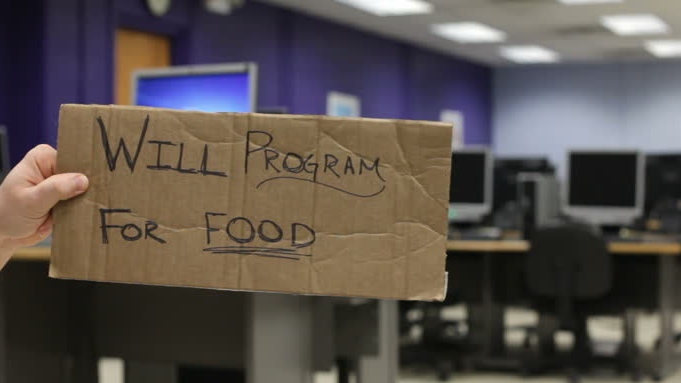 WILL PROGRAM
FOR FOOD